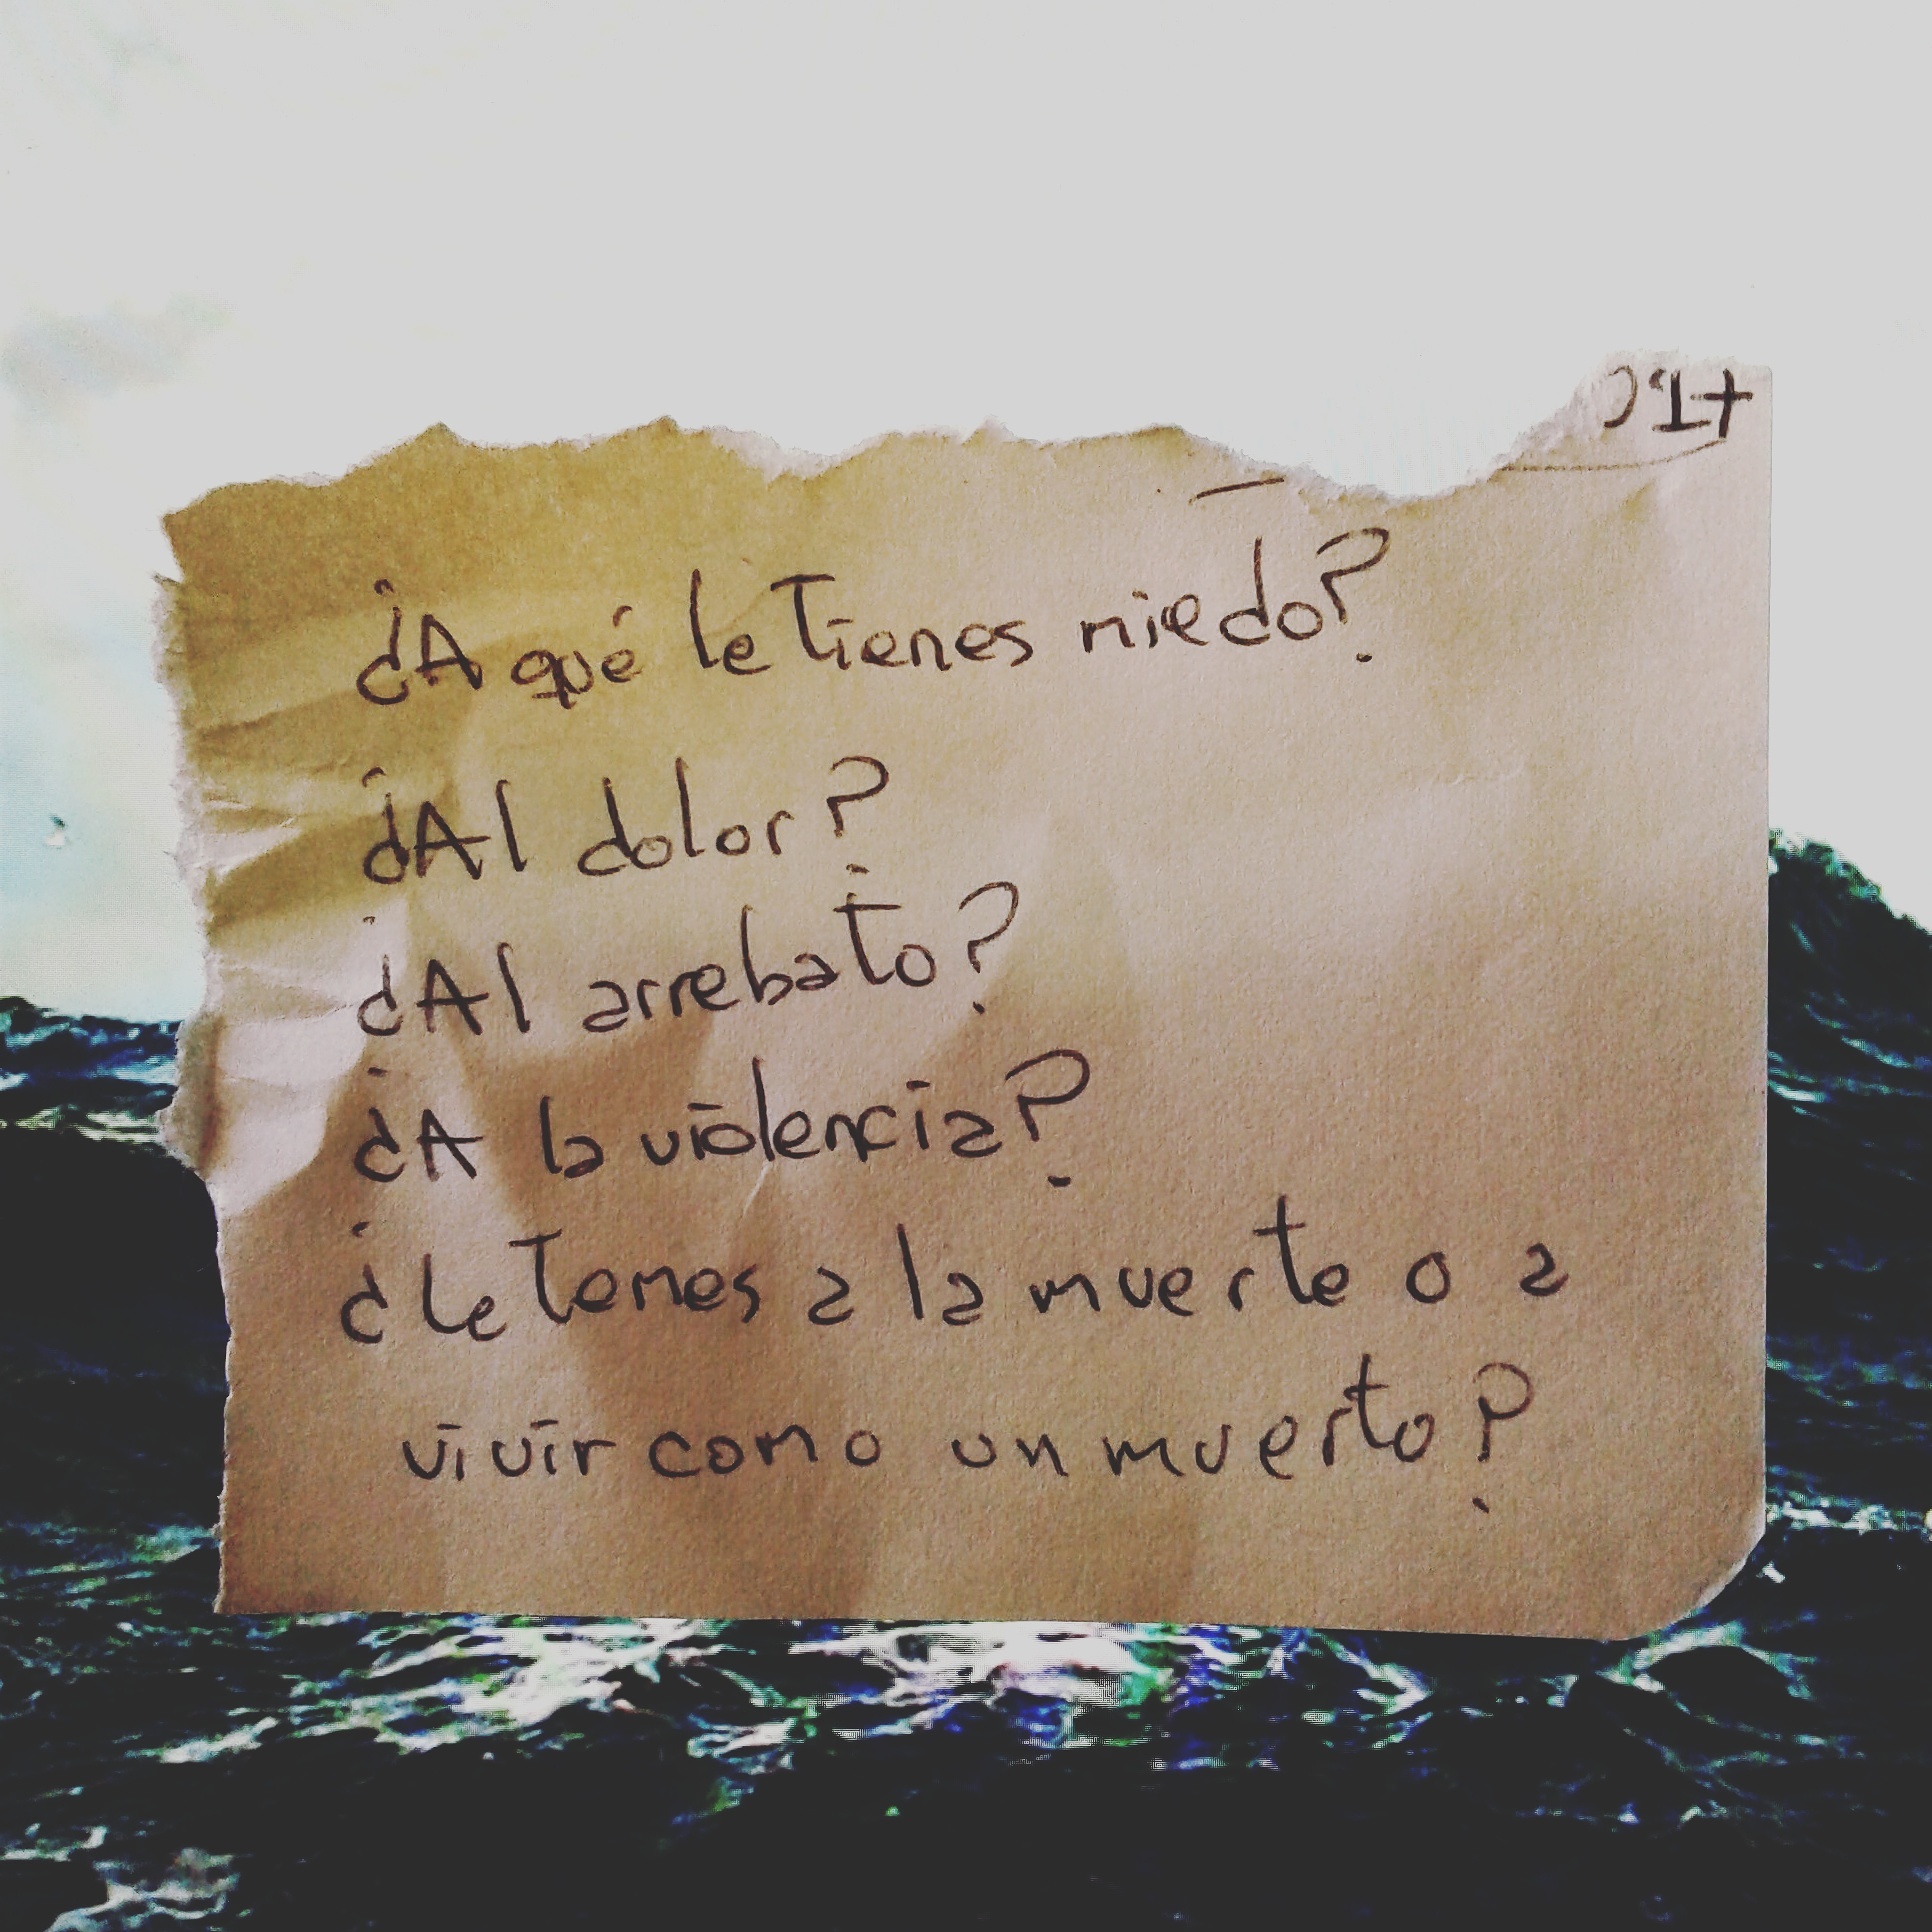 ¿A qué le tienes miedo?
¿Al dolor?
¿Al arrebato?
¿A la violencia?
¿Le temes a la muerte o a
vivir como un muerto?